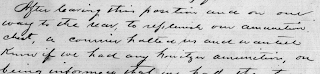 After leaving this position and on our
way to the rear, to replenish our ammunition
chest, a courier halted us and wanted
know if we had any howitzer ammunition, on
being informed that we had